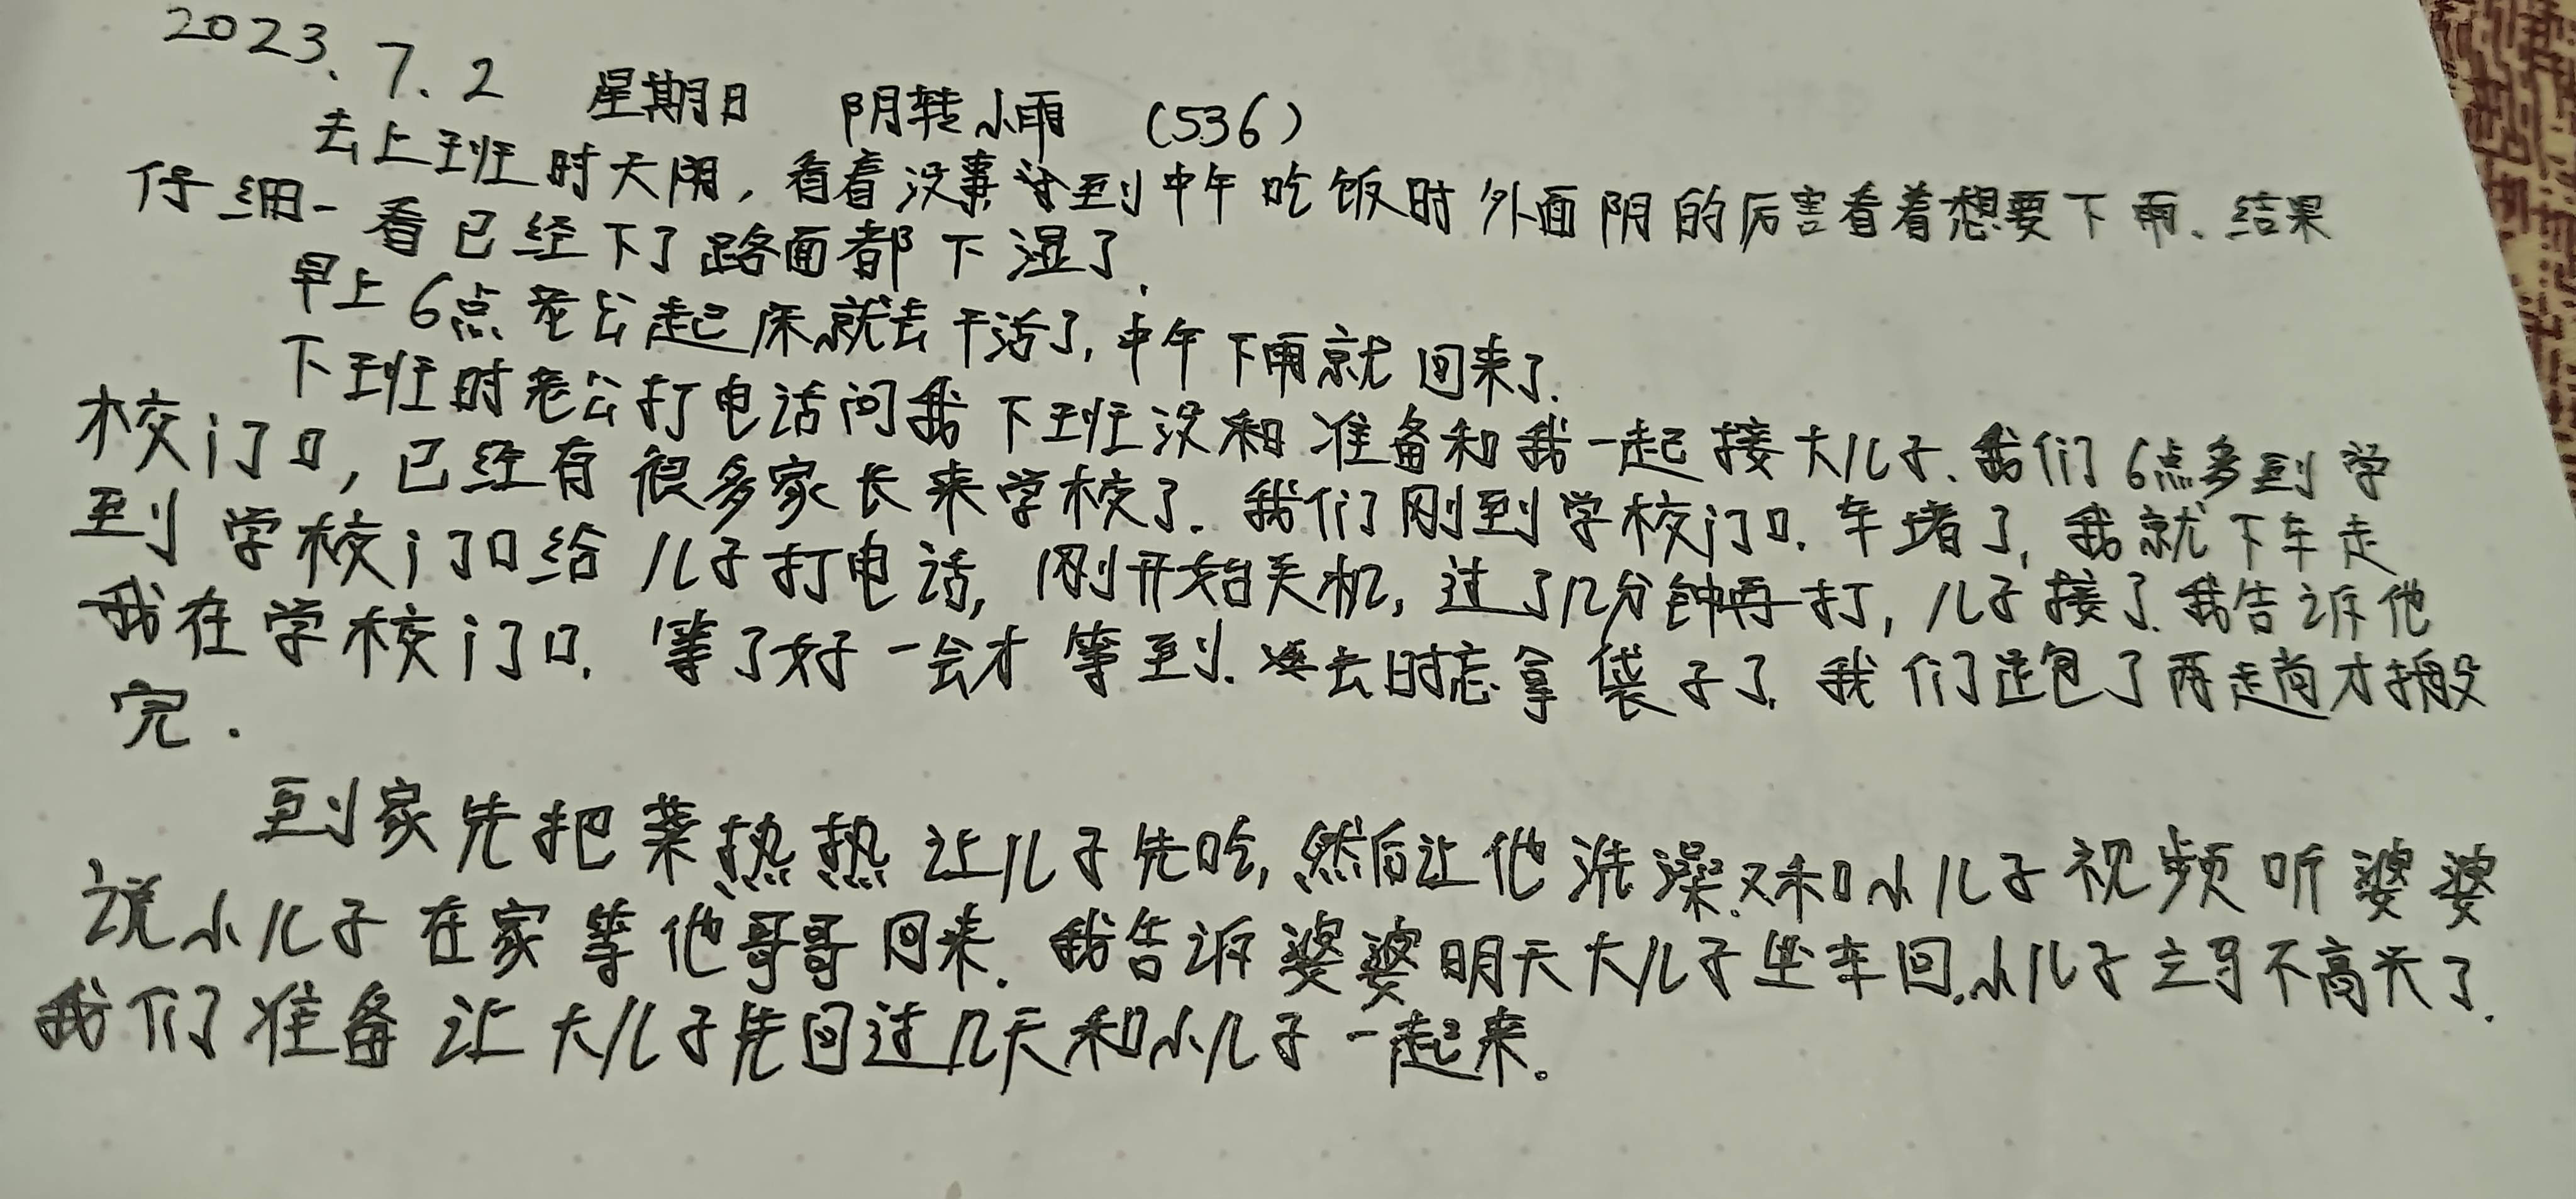 2023.7.2 星期日 阴转小雨 (536)
去上班时天阴,看着没事 到中午吃饭时外面阴的厉害看着想要下雨、结果
仔细一看已经下了路面都下湿了.
早上6点老公起床就去干活了,中午下雨就回来了.
下班时老公打电话问我下班没和准备和我一起接大儿子.我们6点多到学
校门口,已经有很多家长来学校了.我们刚到学校门口.车堵了,我就下车走
到学校门口给儿子打电话,刚开始关机,过了几分钟再打,儿子接了.我告诉他
我在学校门口.等了好一会才等到.去时忘拿袋子了.我们包了两趟才搬
完.
到家先把菜热热让儿子先吃,然后让他洗澡.又和小儿子视频听婆婆
说小儿子在家等他哥哥回来.我告诉婆婆明天大儿子坐车回.小儿子立马不高兴了.
我们准备让大儿子先回过几天和小儿子一起来.